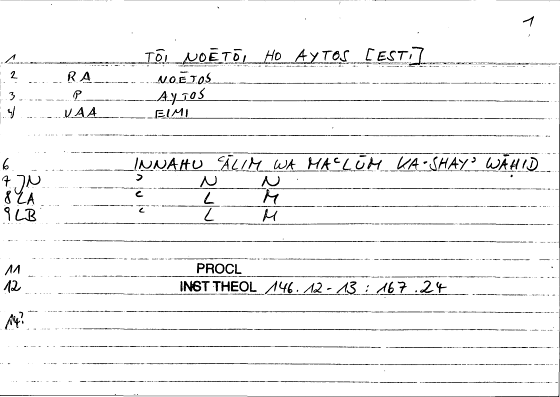 1
1 TŌI NOĒTŌI HO AYTOS [ESTI]
2 RA NOĒTOS
3 P AYTOS
4 VAA EIMI
6 INNAHU ʿĀLIM WA MAʿLŪM KA-SHAYʾ WĀḤID
7 JN ʾ N N
8 LA ʿ L M
9 LB ʿ L M
11 PROCL
12 INST THEOL 146.12-13 : 167.24
14?